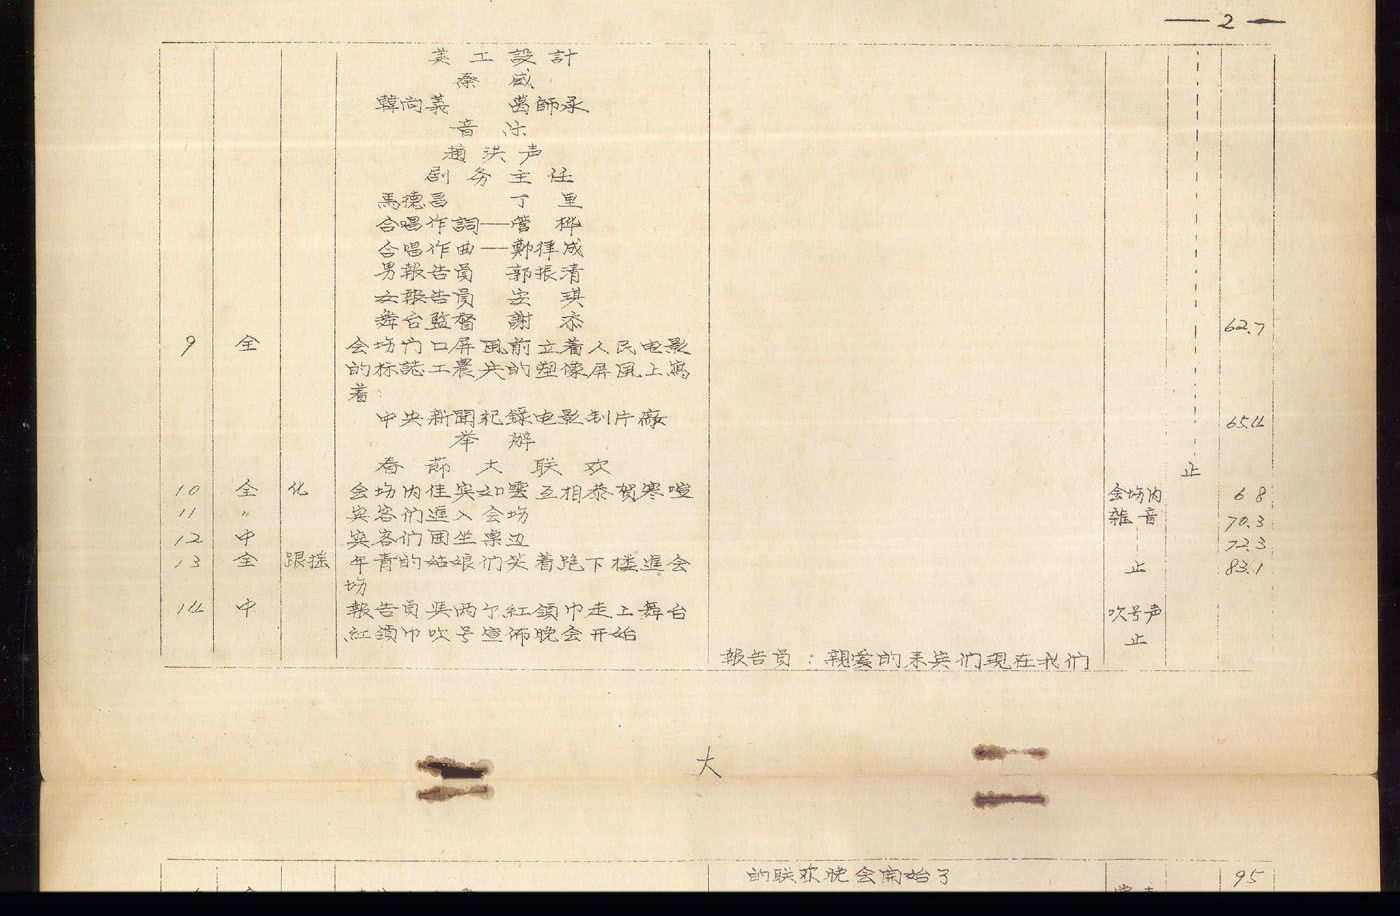 — 2 —
美工設計
秦 威
韓尚義 葛師承
音 乐
趙洪声
剧务主任
馬德昌 丁 里
合唱作詞——管 桦
合唱作曲——鄭律成
男報告員 郭振清
女報告員 安 琪
舞台監督 謝 添 62.7
9 全 会坊门口屏風前立着人民电影
的标誌工農兵的塑像屏風上寫
着:
中央新聞纪錄电影制片廠 65.4
举 辦
春節大联欢 止
10 全 化 会坊内佳宾如雲互相恭贺寒喧 会坊内 68
11 〃 宾客们進入会坊 雜音 70.3
12 中 宾客们囲坐桌边 72.3
13 全 跟摇 年青的姑娘们笑着跑下楼進会 止 83.1
坊
14 中 報告員與两个紅領巾走上舞台 吹号声
紅領巾吹号宣佈晚会开始 止
報告员:親爱的来宾们現在我们
大
的联欢晚会開始了 95